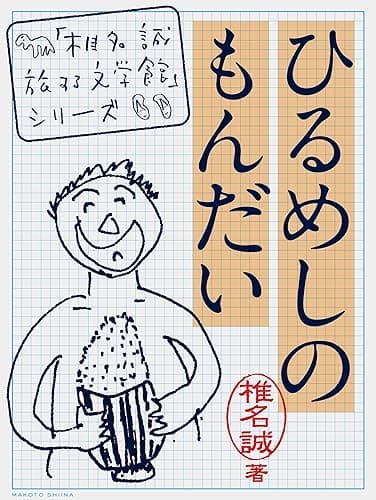 「椎名誠
旅する文学館」
シリーズ
ひるめしの
もんだい
椎名誠
著
MAKOTO SHIINA